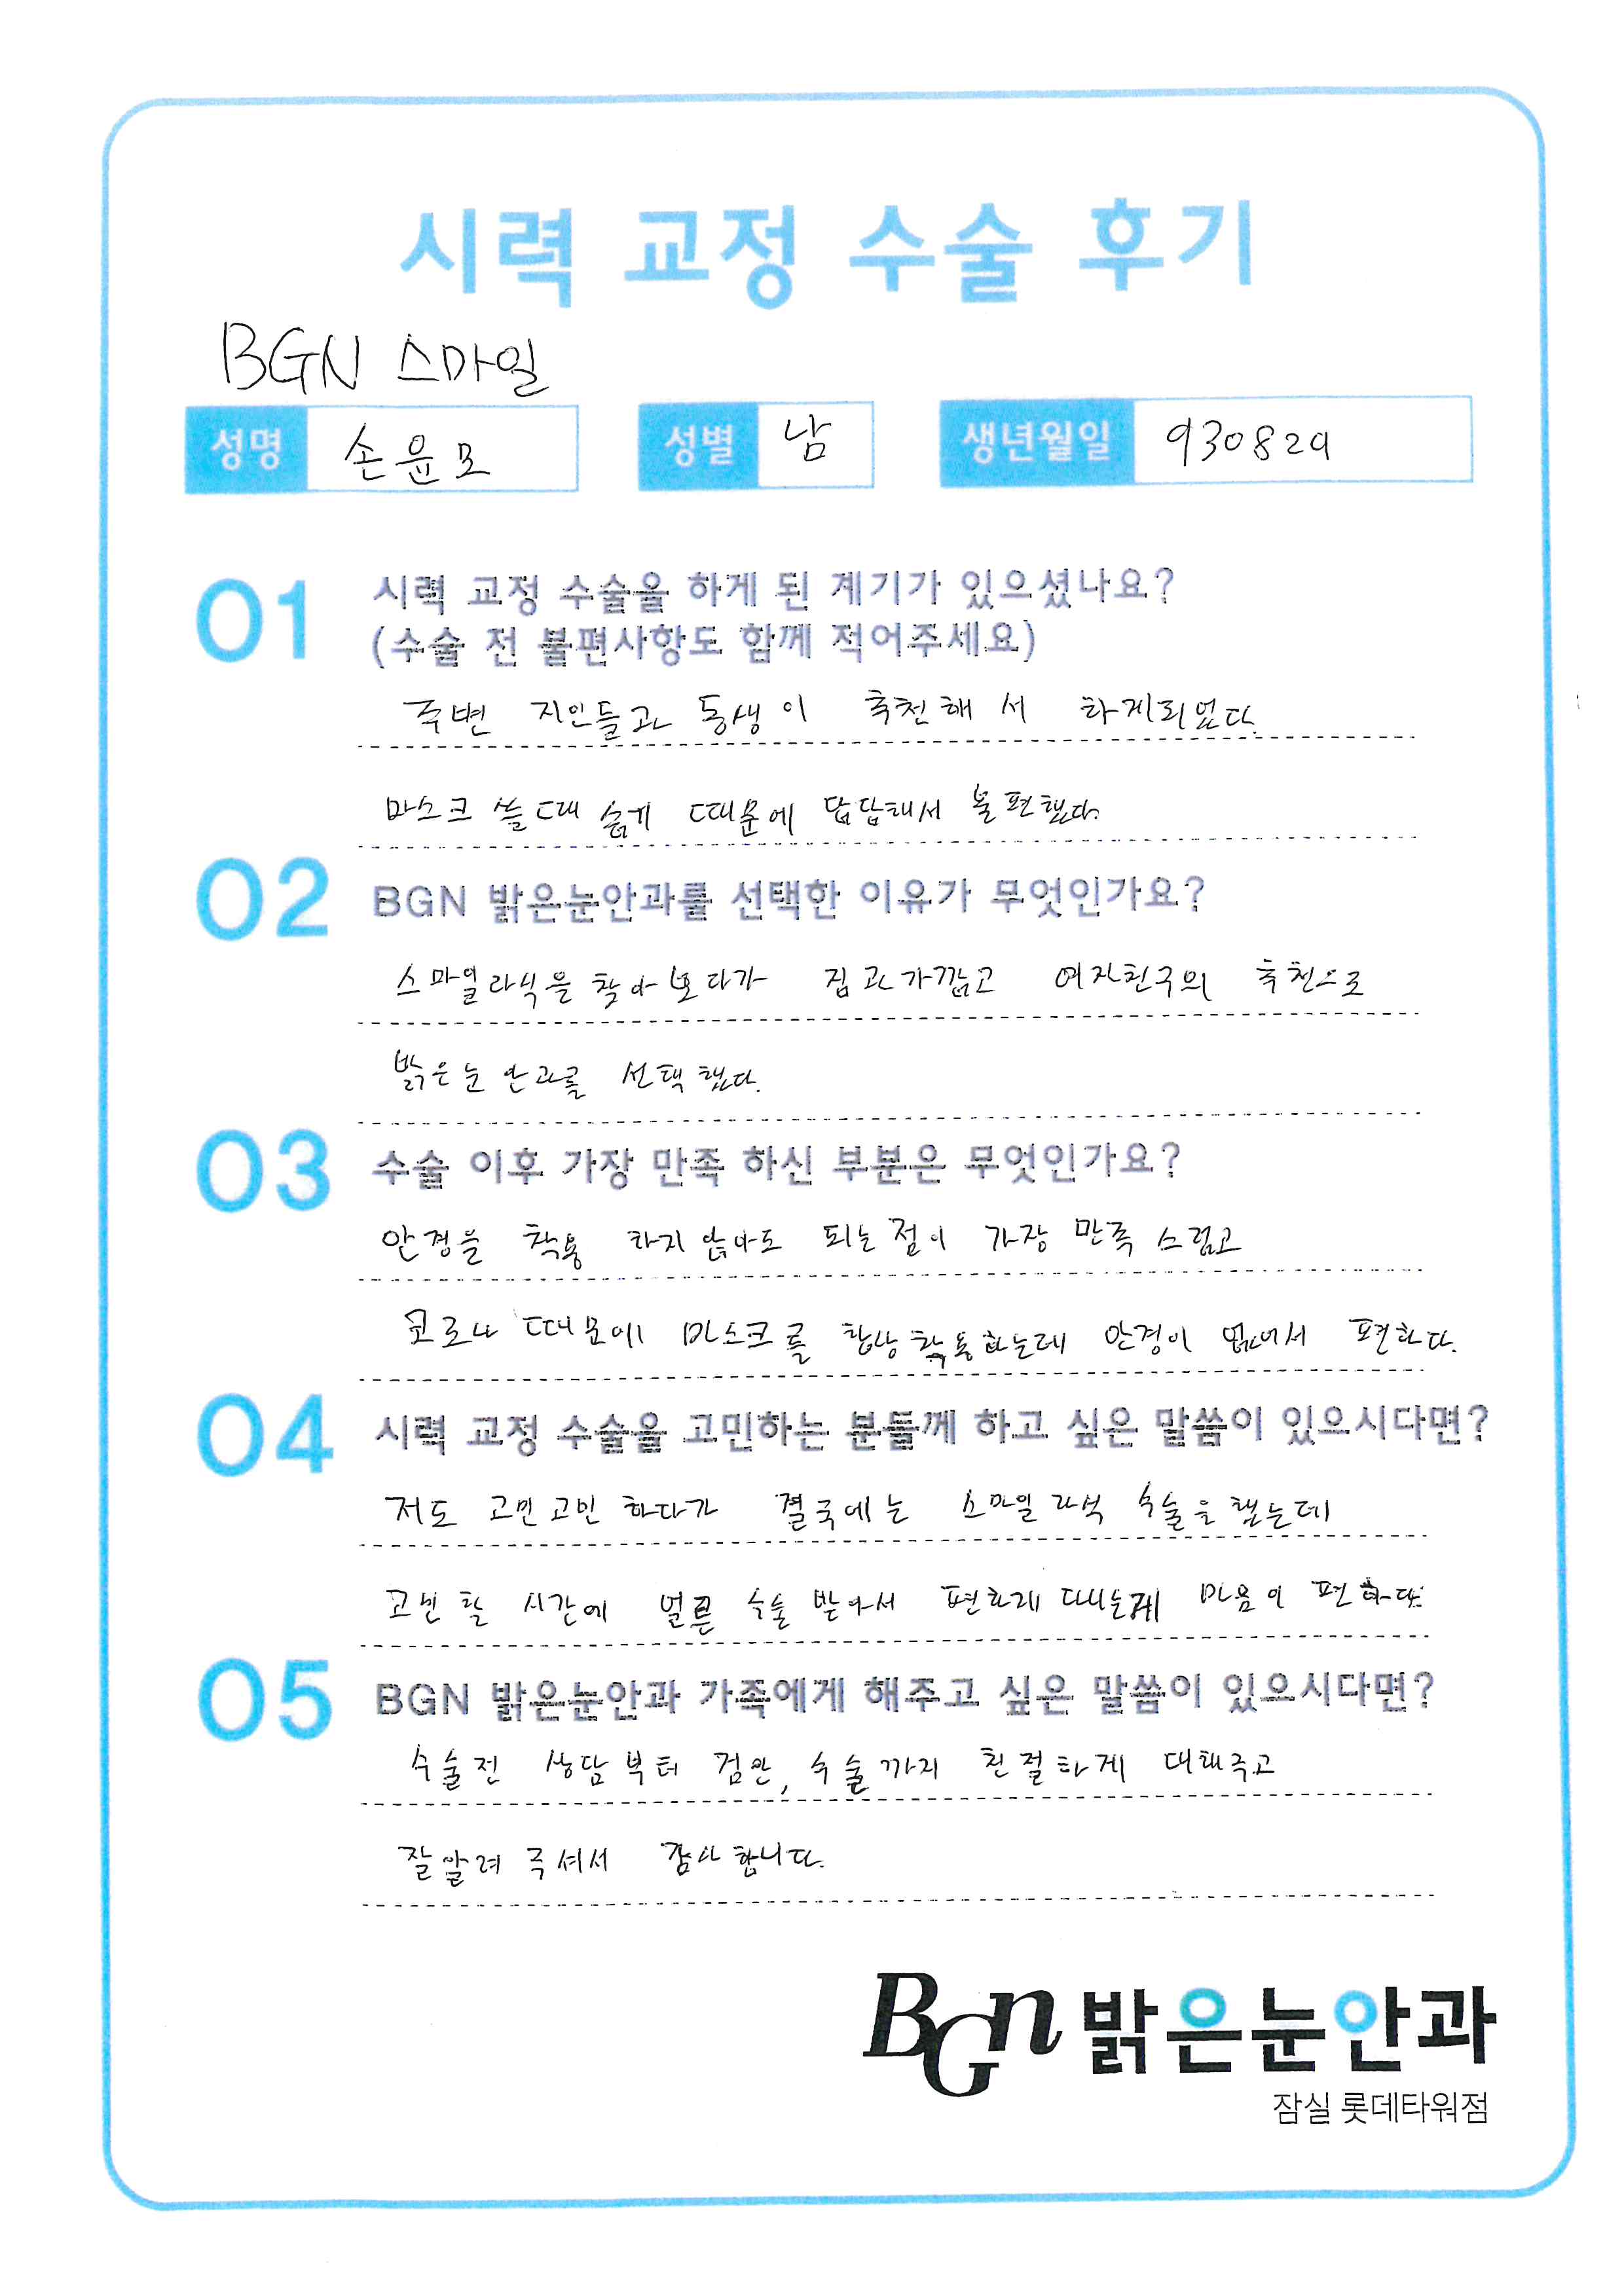 시력 교정 수술 후기
BGN 스마일
성명 손윤모 성별 남 생년월일 930829
01 시력 교정 수술을 하게 된 계기가 있으셨나요?
(수술 전 불편사항도 함께 적어주세요)
주변 지인들과 동생이 추천해서 하게되었다.
마스크 쓸때 숨게 때문에 답답해서 불편했다.
02 BGN 밝은눈안과를 선택한 이유가 무엇인가요?
스마일라식을 찾아보다가 집과가깝고 여자친구의 추천으로
밝은눈안과를 선택했다.
03 수술 이후 가장 만족 하신 부분은 무엇인가요?
안경을 착용 하지 않아도 되는점이 가장 만족스럽고
코로나 때문에 마스크를 항상착용하는데 안경이 없어서 편하다.
04 시력 교정 수술을 고민하는 분들께 하고 싶은 말씀이 있으시다면?
저도 고민고민 하다가 결국에는 스마일라식 수술을했는데
고민할 시간에 얼른 수술 받아서 편하게 다니는게 마음이 편하다.
05 BGN 밝은눈안과 가족에게 해주고 싶은 말씀이 있으시다면?
수술전 상담부터 검안, 수술까지 친절하게 대해주고
잘알려주셔서 감사합니다.
BGn 밝은눈안과
잠실 롯데타워점